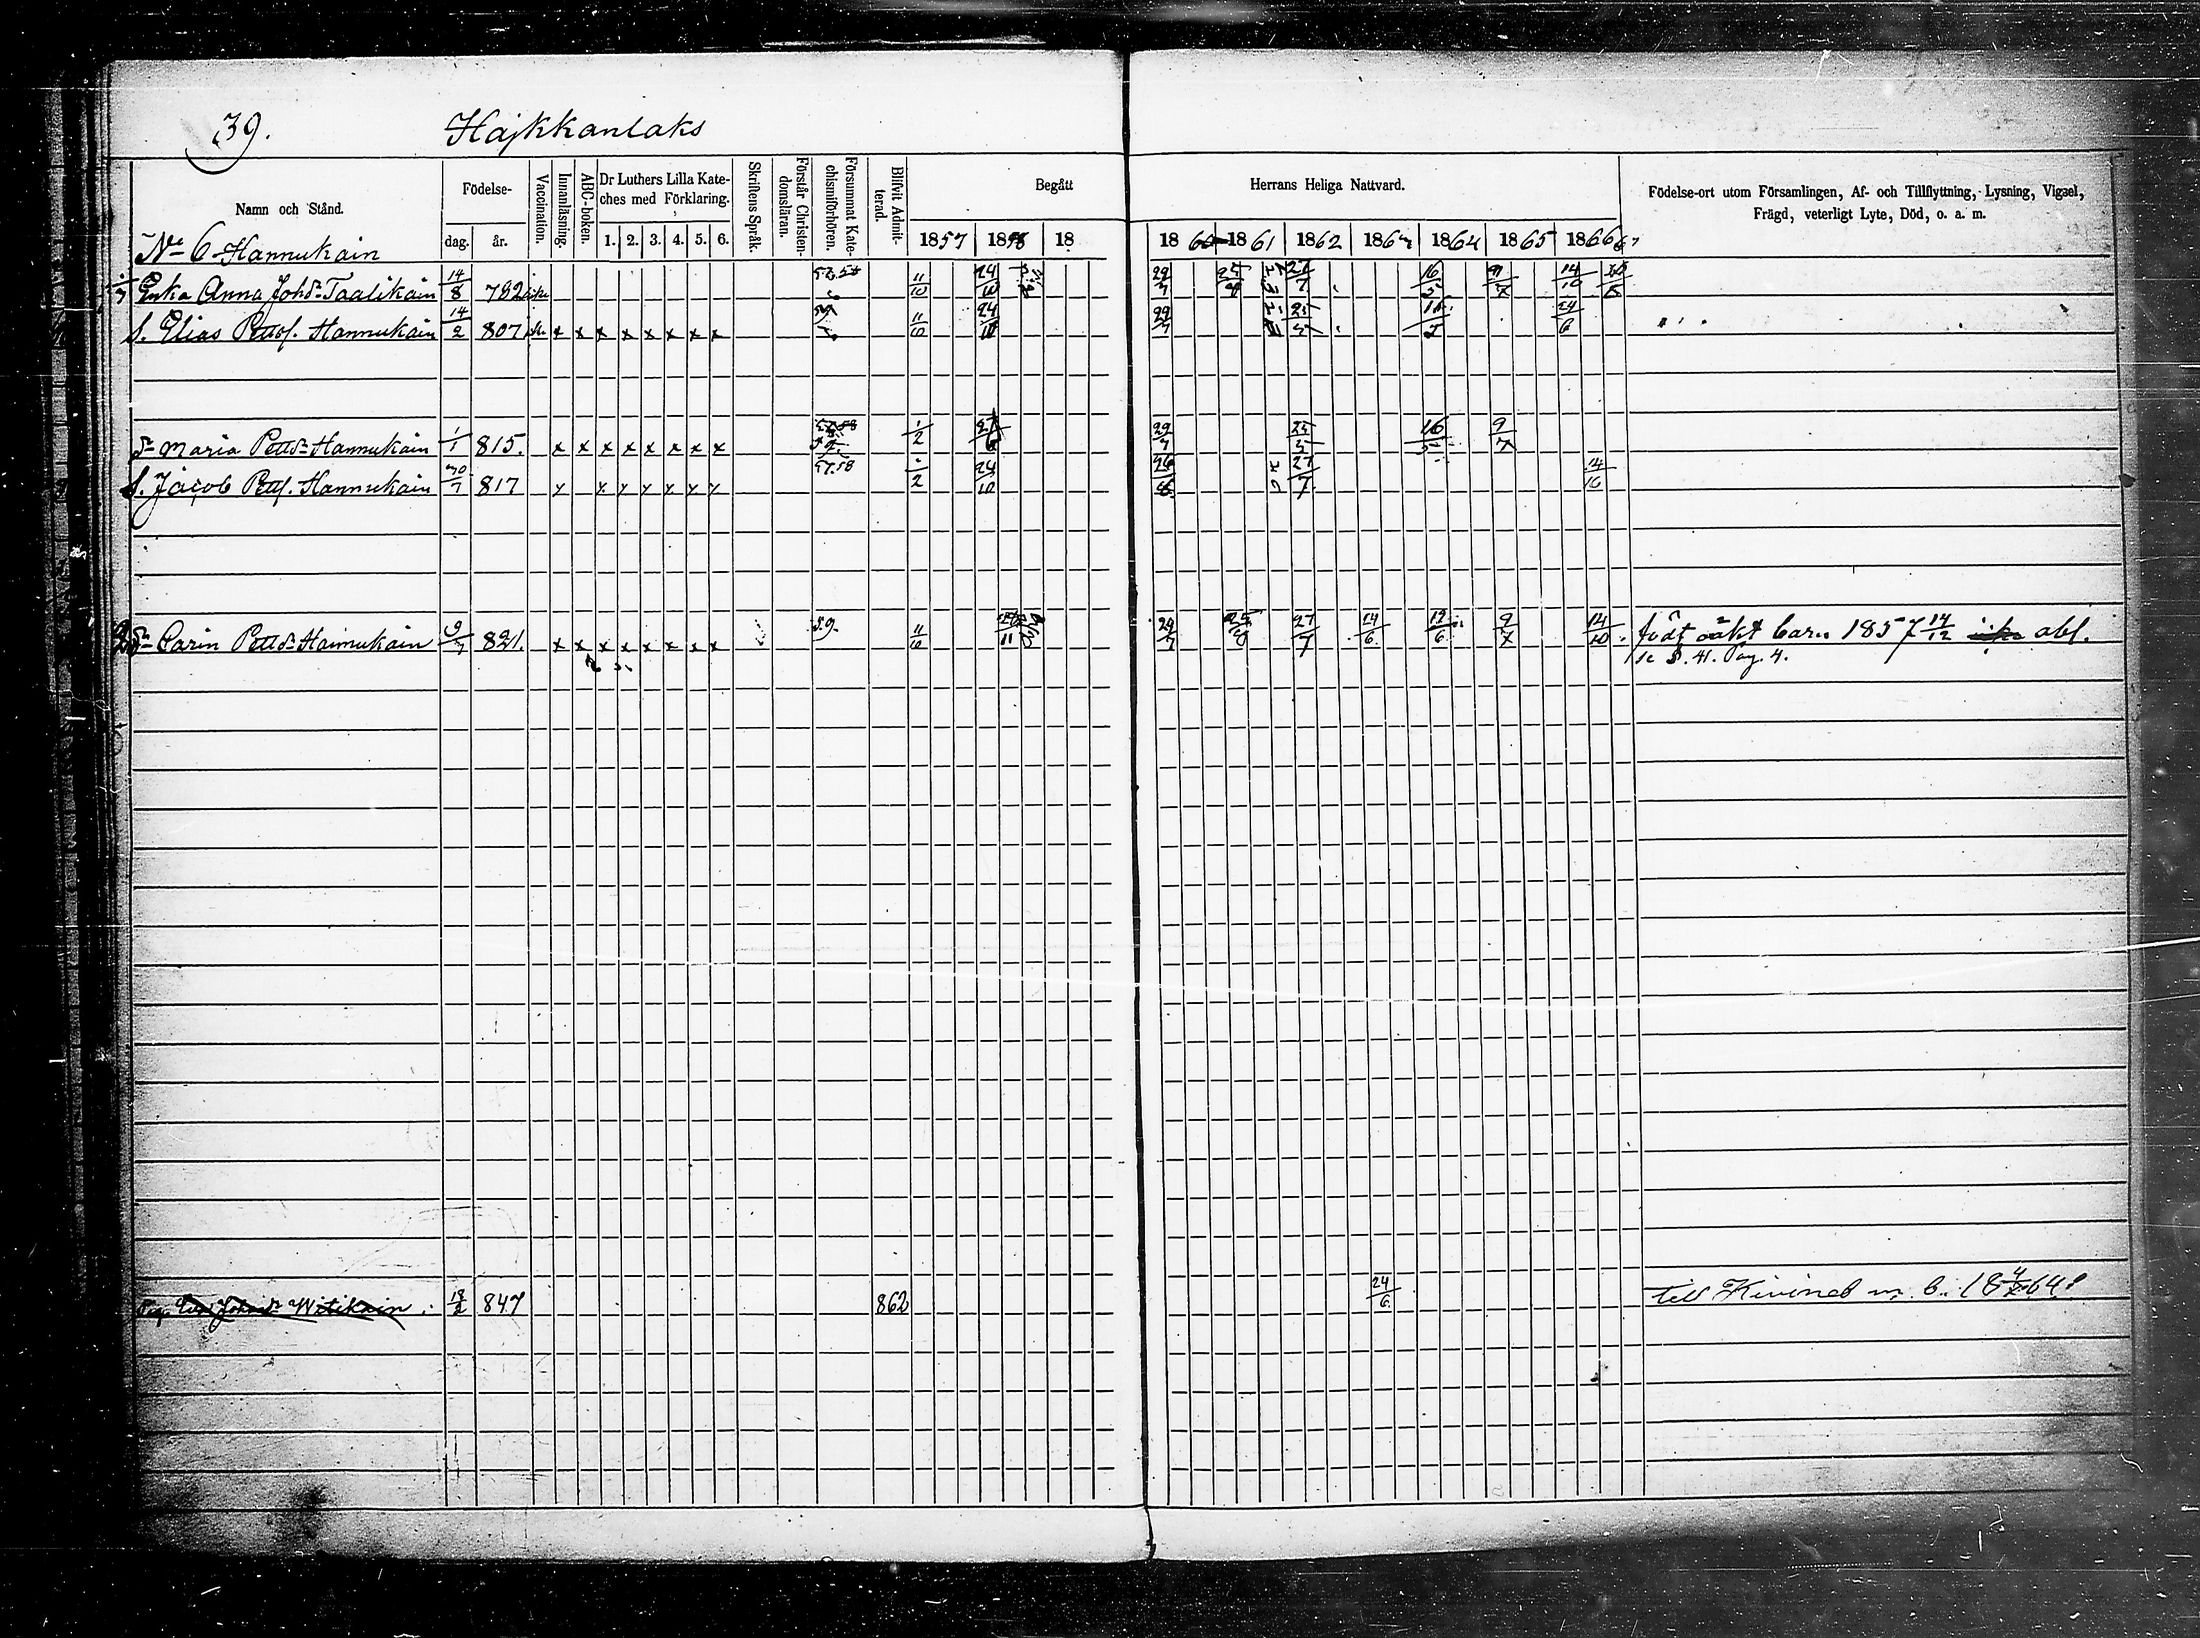 39. Hajkkanlaks
Namn och Stånd. Födelse- dag. år. Vaccination. Innanläsning. ABC-boken. Dr Luthers Lilla Kate-ches med Förklaring. 1. 2. 3. 4. 5. 6. Skriftens Språk. Förstår Christen-domsläran. Försummat Kate-chismiförhören. Blifvit Admit-terad. Begått Herrans Heliga Nattvard. Födelse-ort utom Församlingen, Af- och Tillflyttning, Lysning, Vigsel, Frägd, veterligt Lyte, Död, o. a. m.
1857 1858 18 1860 1861 1862 186 1864 1865 1866
No 6 Hannukain
Enka Anna Johsdr Taalikain 14/8 782 11/10 24/10 29/7 27/7 16/5 9/7 14/10
S. Elias Pettsf. Hannukain 14/2 807 x x x x x x x x 11/10 24/10 29/7 25/5 24/6
Dr Maria Pettdr Hannukain 1/1 815. x x x x x x x x 1/2 29/7 25/5 16/5 9/7
S. Jacob Pettsf. Hannukain 30/7 817 x x x x x x x 57.58 24/10 26/8 27/7 14/10
Dr Carin Pettdr Hannukain 9/7 821. x x x x x x x x 59. 11/10 29/7 27/7 24/6 12/6 9/7 14/10 födt oäkt barn 1857 14/12 abl.
se S. 41. Pag. 4.
Johsdr Witikain 18/2 847 862 24/6 till Kivineb m. b. 18 64